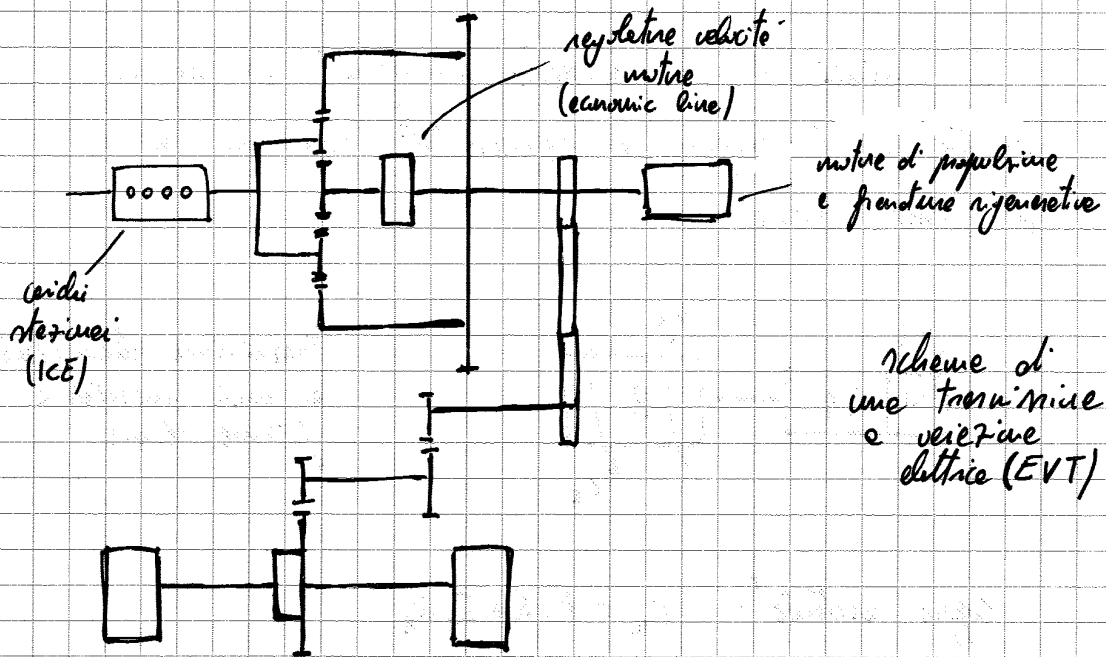 regolatore velocità
motore
(economic line)
motore di propulsione
e frenatura rigenerativa
carichi
stazionari
(ICE)
schema di
una trasmissione
a variazione
elettrica (EVT)